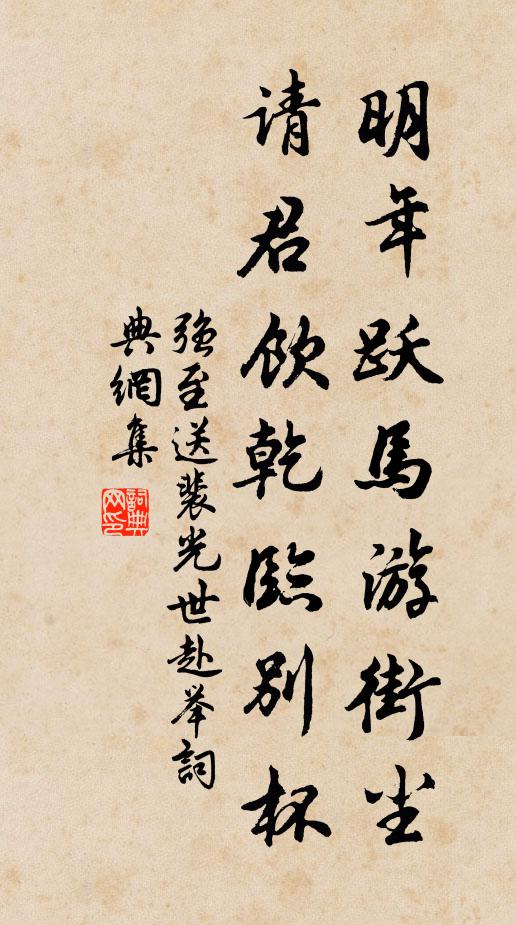 明年跃馬游街尘
请君飲乾臨别杯
强至送裴光世赴举詞
典網集
詞典网印